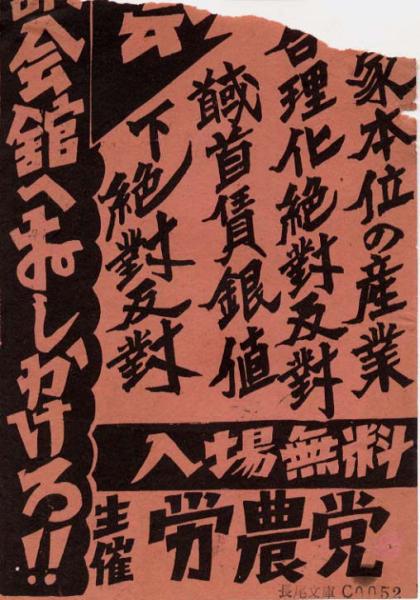 家本位の産業
合理化絶對反對
馘首賃銀値
下絶對反對
会
人会館へおしかけろ!!
入場無料
主催 労農党
長尾文庫 C0052